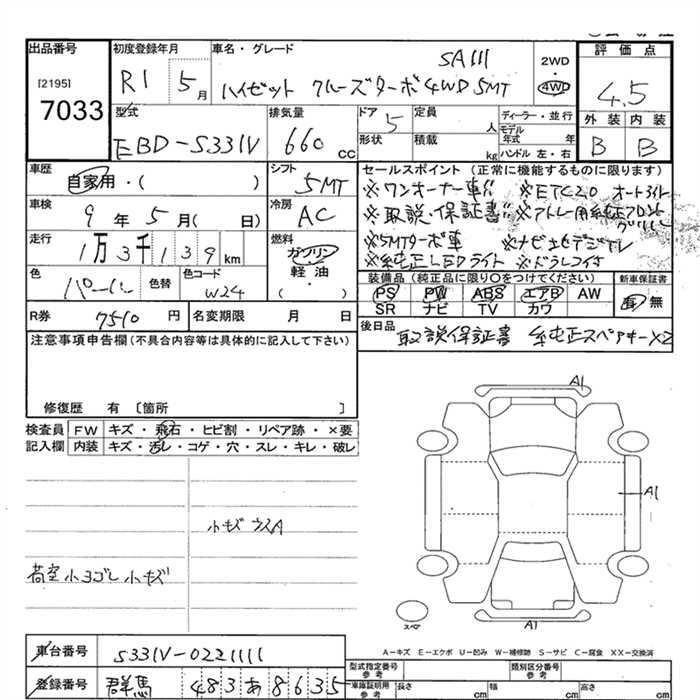 出品番号
[2195]
7033
初度登録年月
R1 5月
車名・グレード
SA111
ハイゼット クルーズターボ4WD 5MT
2WD
・
4WD
評価点
4.5
外装 内装
B B
型式
EBD-S331V
排気量
660 cc
ドア 5
形状
定員 人
積載 kg
ディーラー・並行
モデル年式 年
ハンドル 左・右
車歴
自家用・( )
シフト
5MT
車検
9年5月( 日)
冷房
AC
走行
1万3千139km
燃料
ガソリン
軽・油
・( )
色
パール
色替
色コード
W24
R券 7510円
名変期限 月 日
セールスポイント(正常に機能するものに限ります)
※ワンオーナー車!! ※ETC2.0 オートライト
※取説・保証書!! ※アトレー用純正フロントグリル
※5MTターボ車 ※ナビ地デジTV
※純正LEDライト ※ドラレコ付
装備品(純正品に限り〇をつけてください)
PS PW ABS エアB AW
SR ナビ TV カワ
新車保証書
有・無
後日品
取説保証書 純正スペアキーX2
注意事項申告欄(不具合内容等は具体的に記入して下さい)
修復歴 有〔箇所 〕
検査員記入欄
FW キズ・飛石・ヒビ割・リペア跡・×要
内装 キズ・汚レ・コゲ・穴・スレ・キレ・破レ
小キズ ウスA
荷室小ヨゴレ小キズ
A1
A1
A1
スペア
A-キズ E-エクボ U-凹み W-補修跡 S-サビ C-腐食 XX-交換済
車台番号
S331V-0221111
登録番号
群馬 483あ8635
型式指定番号 参考
類別区分番号 参考
車庫証明用 参考
長さ cm
幅 cm
高さ cm